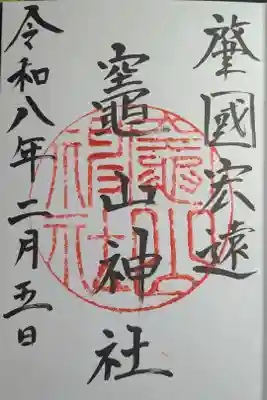 肇國宏遠
竈山神社
令和八年二月五日